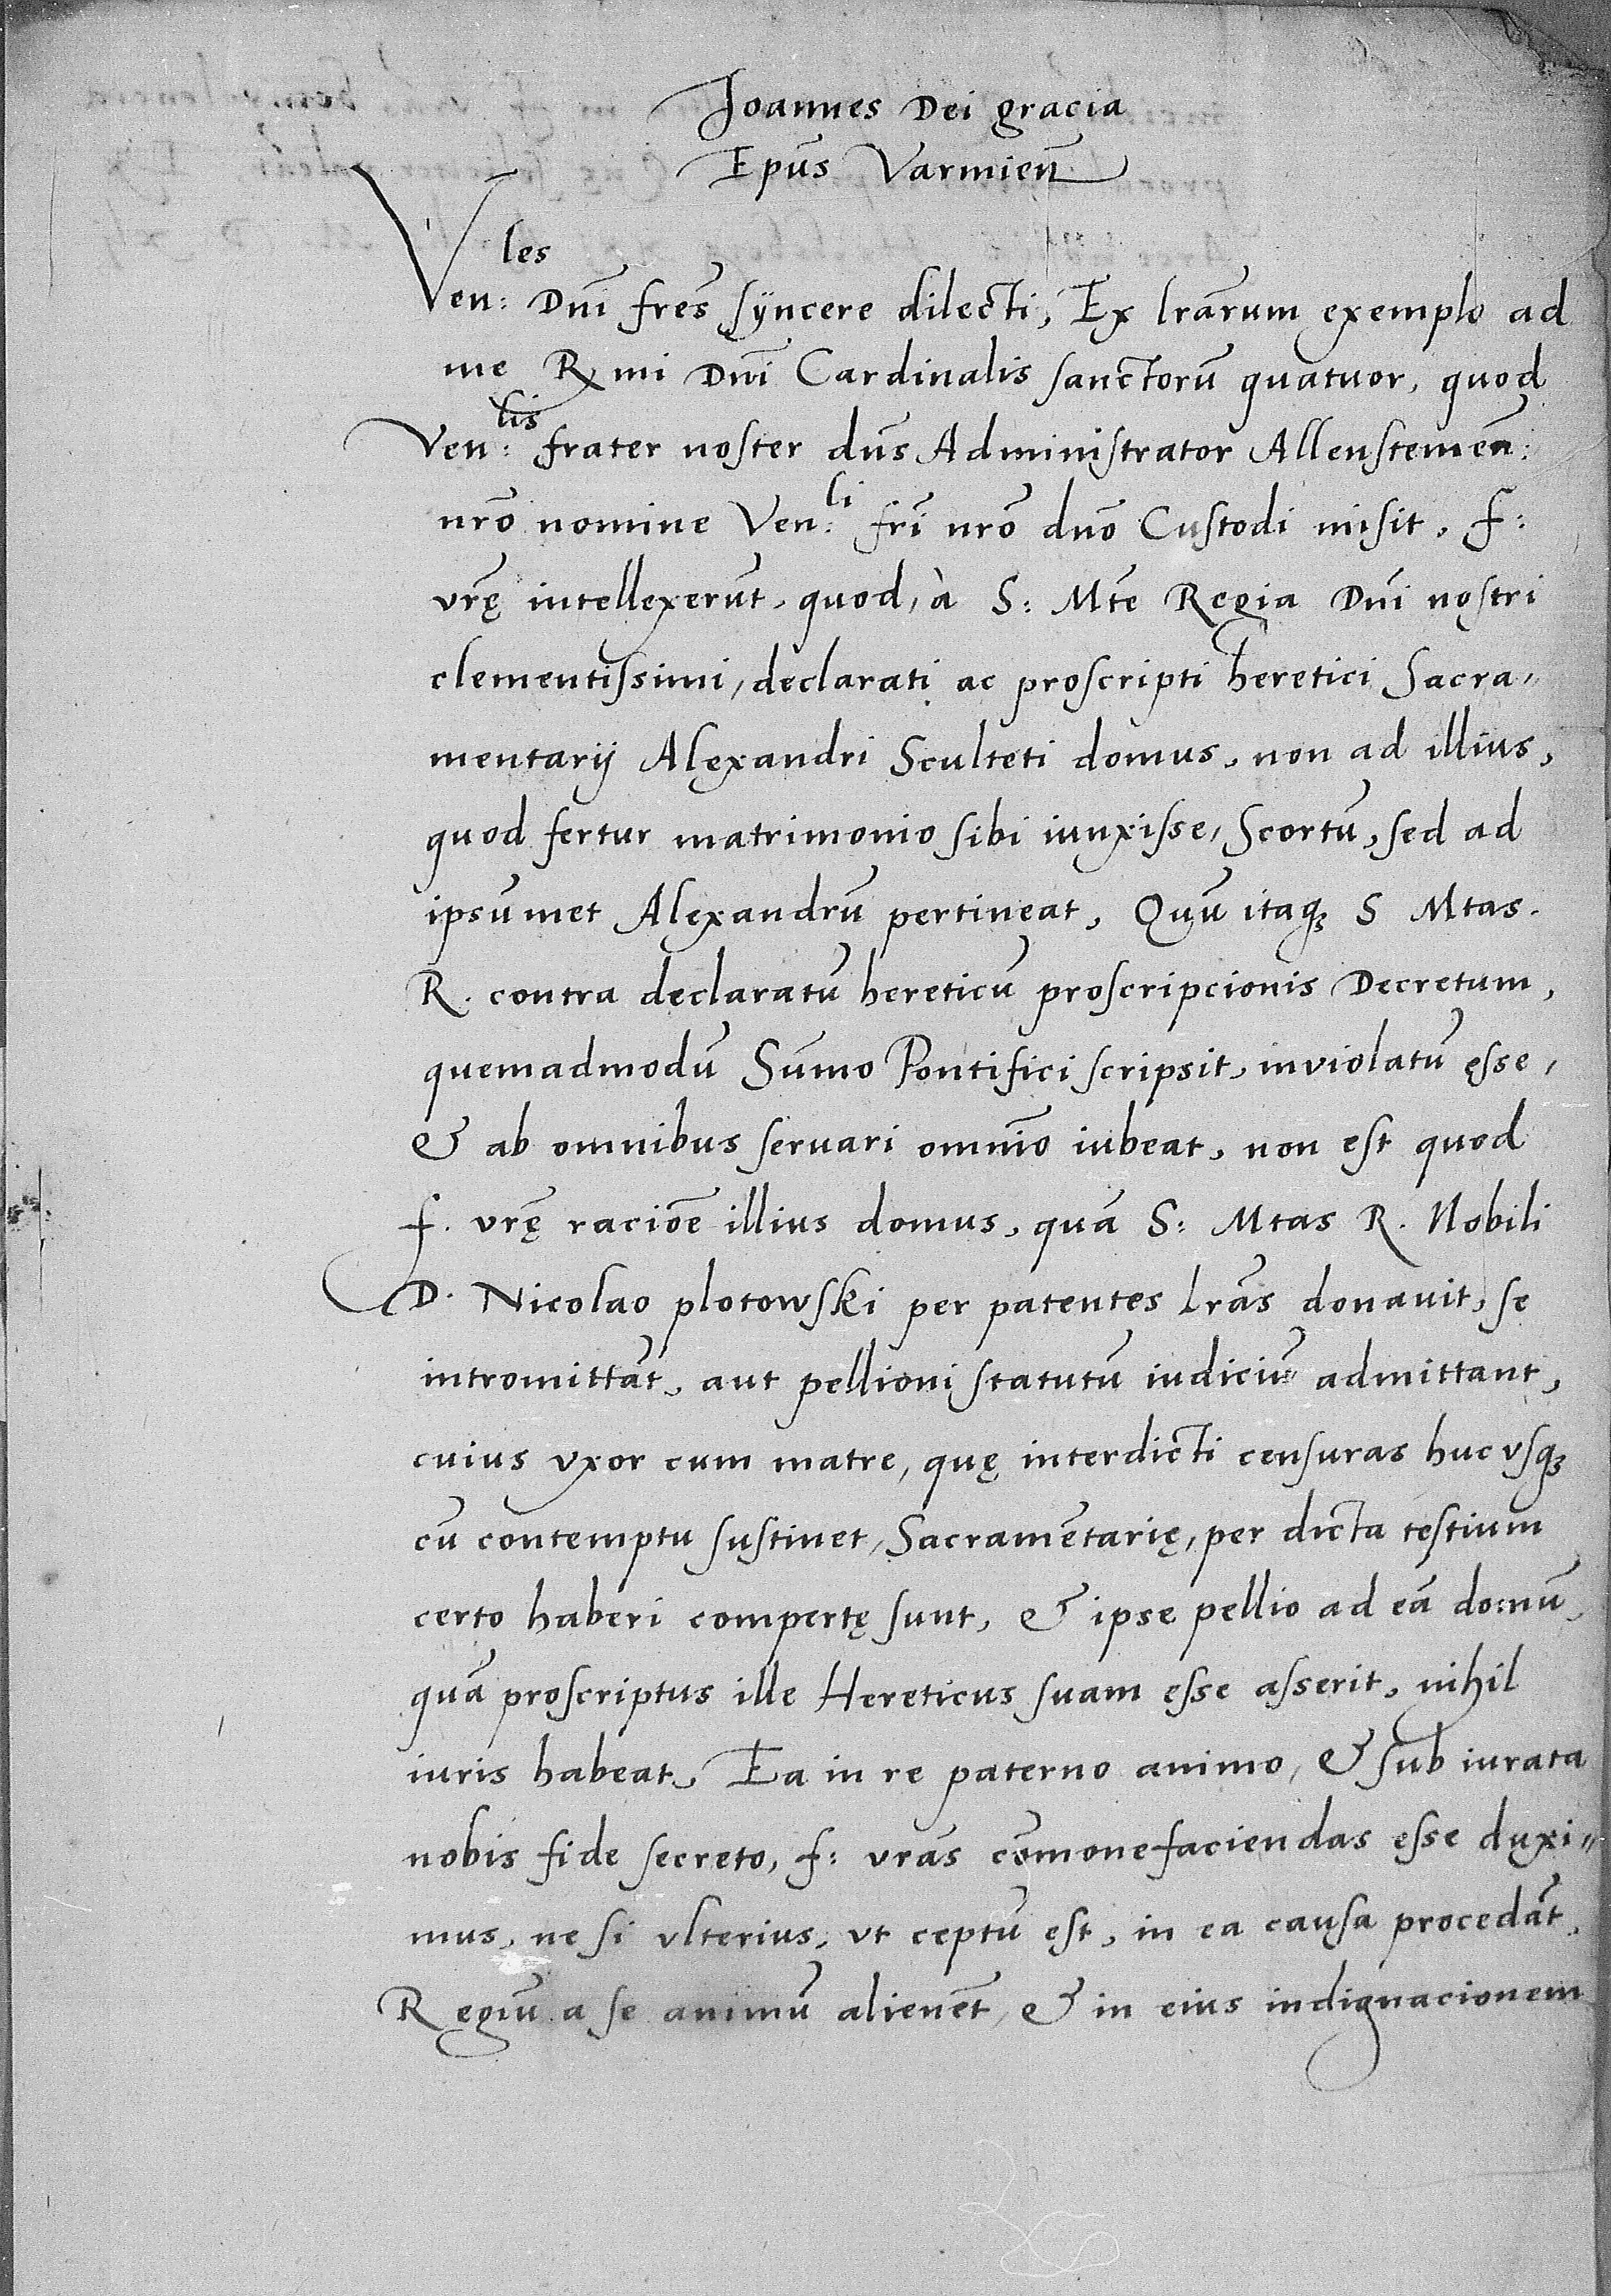 Joannes Dei gracia
Epūs Varmien̄
Ven:les Dnī frēs syncere dilecti, Ex lrārum exemplo ad
me Rmi Dnī Cardinalis sanctorū quatuor, quod
Ven:lis frater noster dn̄s Administrator Allensteinen̄:
nrō nomine Ven:li frī nrō dnō Custodi misit, f:
vrę̄ intellexerūt, quod, à S: Mtē Regia Dnī nostri
clementissimi, declarati ac proscripti heretici Sacra„
mentarij Alexandri Sculteti domus, non ad illius,
quod fertur matrimonio sibi iunxisse, Scortū, sed ad
ipsūmet Alexandrū pertineat, Quū itaqꝫ S Mtas.
R. contra declaratū hereticū proscripcionis Decretum,
quemadmodū Sūmo Pontifici scripsit, inviolatū esse,
& ab omnibus seruari omnīo iubeat, non est quod
f. vrę̄ raciōe illius domus, quā S: Mtas R. Nobili
D. Nicolao plotowski per patentes Lrās donauit, se
intromittāt, aut pellioni statutū iudiciū admittant,
cuius vxor cum matre, quę interdicti censuras huc vsqꝫ
cū contemptu sustinet, Sacramētarię, per dicta testium
certo haberi compertę sunt, & ipse pellio ad eā domū,
quā proscriptus ille Hereticus suam esse asserit, nihil
iuris habeat, Ea in re paterno animo, & sub iurata
nobis fide secreto, f: vrās cōmonefaciendas esse duxi„
mus, ne si vlterius, vt ceptū est, in ea causa procedāt,
Regiū a se animū alienēt, & in eius indignacionem